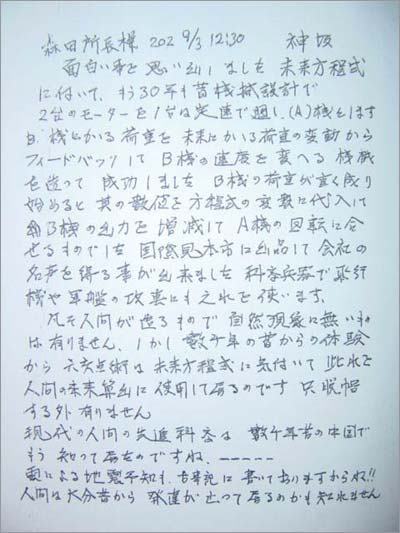 森田所長様 202 9/3 12:30 神坂
面白い事を思い出しました 未来方程式
に付いて、もう30年も昔機械設計で
2台のモーターを1台は定速で廻し、(A)機とします
B機にかかる荷重を未来にかかる荷重の変動から
フィードバックして B機の速度を変へる機械
を造って 成功しました B機の荷重が重く成り
始めると 其の数値を方程式の変数に代入して
B機の出力を増減して A機の回転に合
せるものでした 国際見本市に出品して会社の
名声を得る事が出来ました 科学兵器で飛行
機や軍艦の改善にも之れを使います。
凡そ人間が造るもので自然現象に無いもの
は有りません、しかし数千年の昔からの体験
から 六爻占術は未来方程式に気付いて 此れを
人間の未来算出に使用して居るのです 只脱帽
する外有りません
現代の人間の先進科学は 数千年昔の中国で
もう知って居たのですね、-----
雲による地震予知も、古書に書いてありますからね!!
人間は大分昔から 発達が止って居るのかも知れません